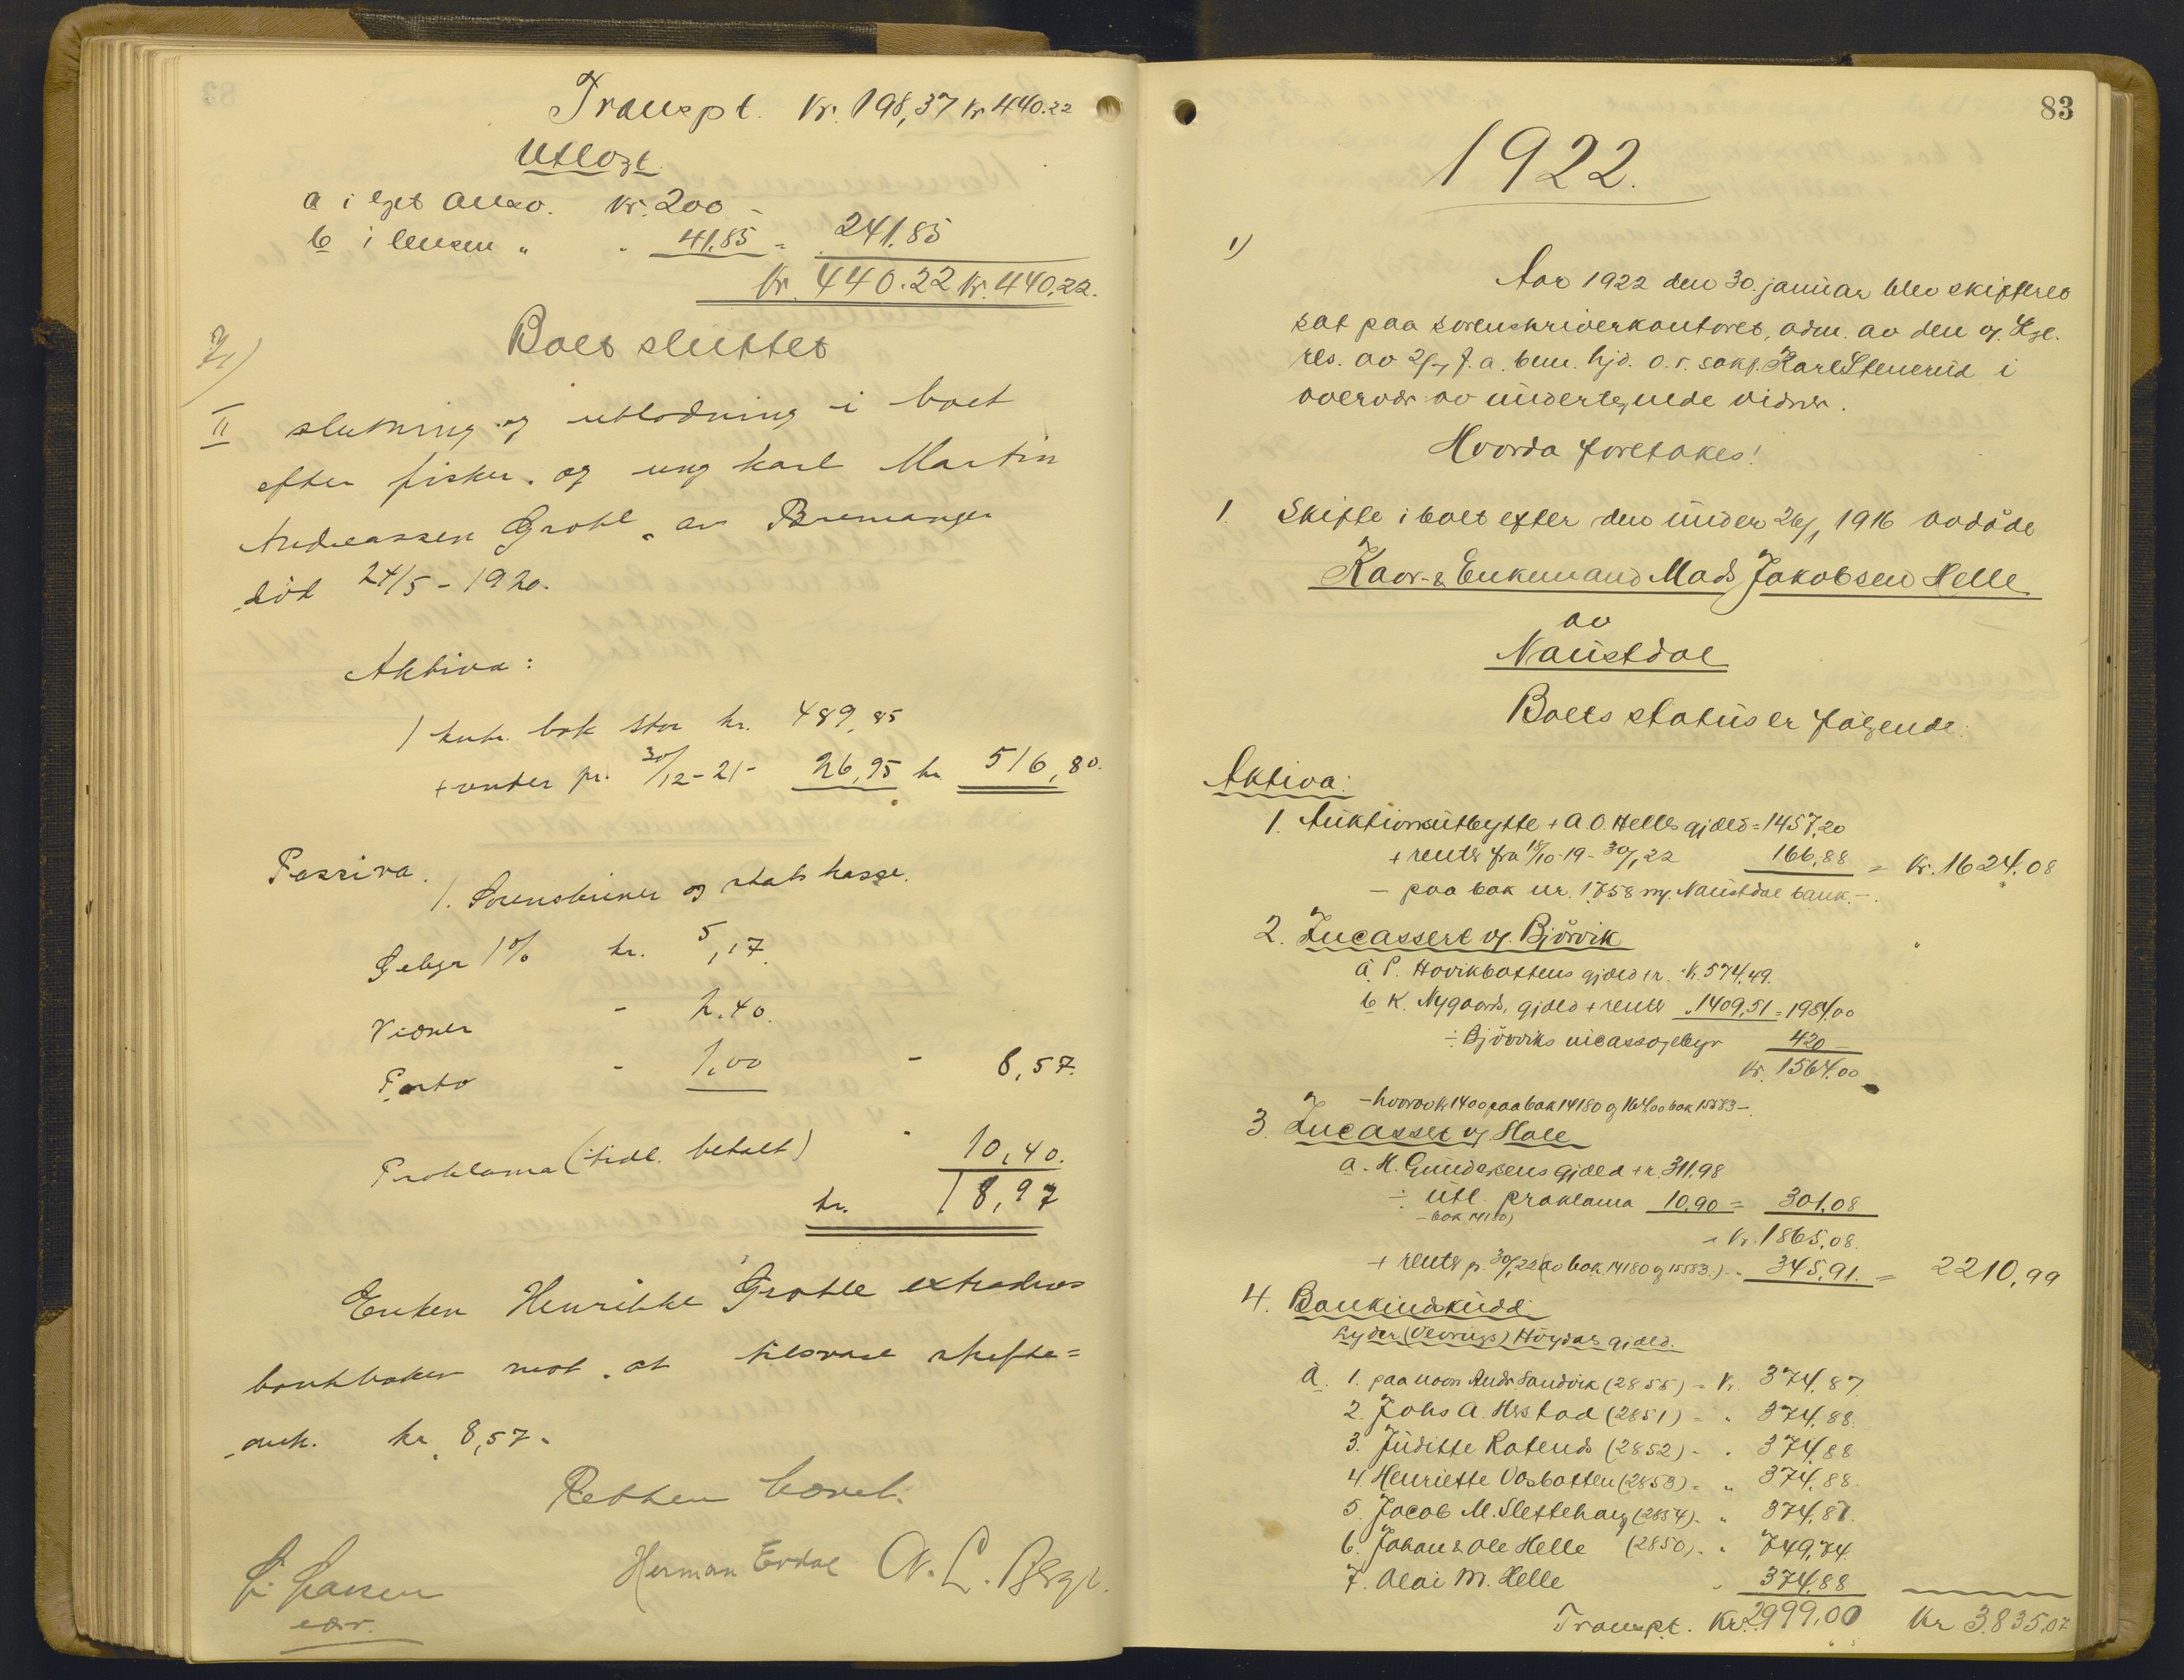 Transpt. Kr. 198,37 Kr 440.22
Utlagt
a i eget Kr. 200 -
b i " " 41.85 = 241.85
Kr. 440.22 Kr. 440.22.
Boet sluttet
II slutning og utlodning i boet
efter fisker og ungkarl Martin
Andreassen Grotle av Bremanger
död 24/5 - 1920.
Aktiva:
1 kntr. bok stor kr. 489,85
+ renter pr. 30/12-21- 26,95 kr 516,80.
Passiva.
1. Sorenskriver og statskasse.
Gebyr 1% kr. 5,17.
Vidner - 2.40.
Porto - 1,00 - 8,57.
Proklama (tidl. betalt) - 10,40.
kr. 18,97
Enken Henrikke Grotle extraderes
bankboken mot at tilsvare skifte=
omk. kr 8,57.
Retten hævet.
Herman Erdal
83
1922.
1)
Aar 1922 den 30. januar blev skifteret
sat paa sorenskriverkontoret, adm. av den
res. av bem. hjd. o.r. sakf. Karl Stenerud i
overvær av undertegnede vidner.
Hvorda foretokes!
1. Skifte i boet efter den under 26/1 1916 avdöde
Kaar- & Enkemand Mads Jakobsen Helle
av
Naustdal
Boets status er fölgende:
Aktiva:
1. Auktionsutbytte + A.O. Helles gjæld = 1457,20
+ rente fra 18/10-19 - 30/1 22 166,88 = Kr. 1624.08
- paa bok nr. 1758 Naustdal bank. -
2. Incassert v. Björvik
a P. Hovikbottens gjæld + r. Kr. 574,49.
b K. Nygaards, gjæld + rente " 1409,51 = 1984,00
÷ Björviks incassogebyr 420 -
Kr. 1564.00
- hvorav kr 1400 paa bok 14180 og 164,00 bok 15583 -.
3. Incasset v. Hole
a. H. Gundersens gjæld + r. 311.98
÷ utl. proklama 10.90 = 301,08
- bok 14180)
= Kr. 1865,08.
+ rente p. 30/1 22 (av bok 14180 og 15583.) - 345,91. = 2210,99
4. Bankindskudd
Höydals gjæld.
a. 1. paa navn Andr. Sandvik (2855) = Kr. 374,87
2. Johs A. Herstad (2851) = " 374,88.
3. Juditte Ratends (2852) - " 374,88
4. Henriette Vosbotten (2853) = " 374,88.
5. Jacob M. Slettehaug (2854) - " 374,87.
6. Johan & Ole Helle (2850) - " 749,74.
7. Olai M. Helle " 374,88
Transpt. Kr. 2999,00 Kr 3.835,07